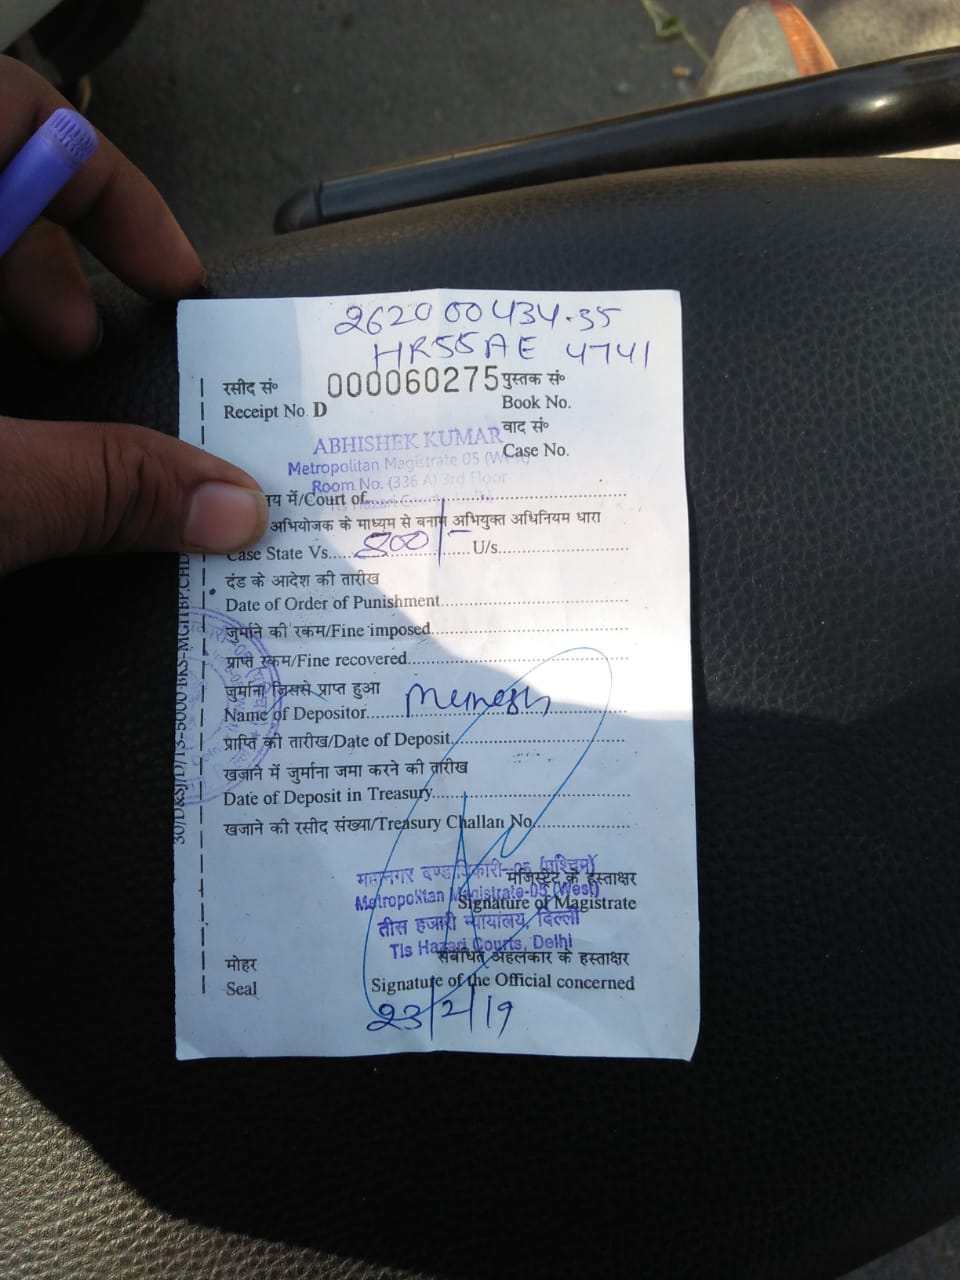 26200043435
HR55AE 4741
रसीद सं० 000060275 पुस्तक सं०
Receipt No. D Book No.
वाद सं०
ABHISHEK KUMAR Case No.
Metropolitan Magistrate 05 (West)
Room No. (336 A) 3rd Floor
में/Court of
अभियोजक के माध्यम से बनाम अभियुक्त अधिनियम धारा
Case State Vs. 800/- U/s.
दंड के आदेश की तारीख
Date of Order of Punishment
जुर्माने की रकम/Fine imposed
प्राप्त रकम/Fine recovered
जुर्माना जिससे प्राप्त हुआ
Name of Depositor
प्राप्ति की तारीख/Date of Deposit
खजाने में जुर्माना जमा करने की तारीख
Date of Deposit in Treasury
खजाने की रसीद संख्या/Treasury Challan No.
महानगर दण्डाधिकारी-05 (पश्चिम)
मजिस्ट्रेट के हस्ताक्षर
Metropolitan Magistrate-05 (West)
Signature of Magistrate
तीस हजारी न्यायालय, दिल्ली
Tis Hazari Courts, Delhi
मोहर संबंधित अहलकार के हस्ताक्षर
Seal Signature of the Official concerned
23/2/19